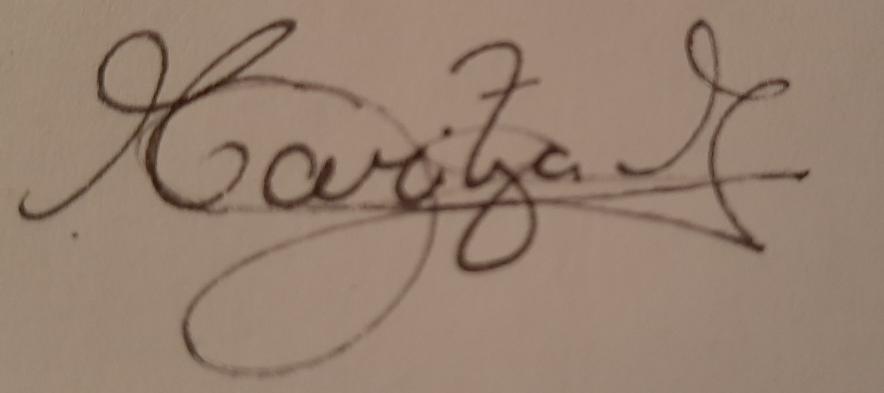 Maritza M